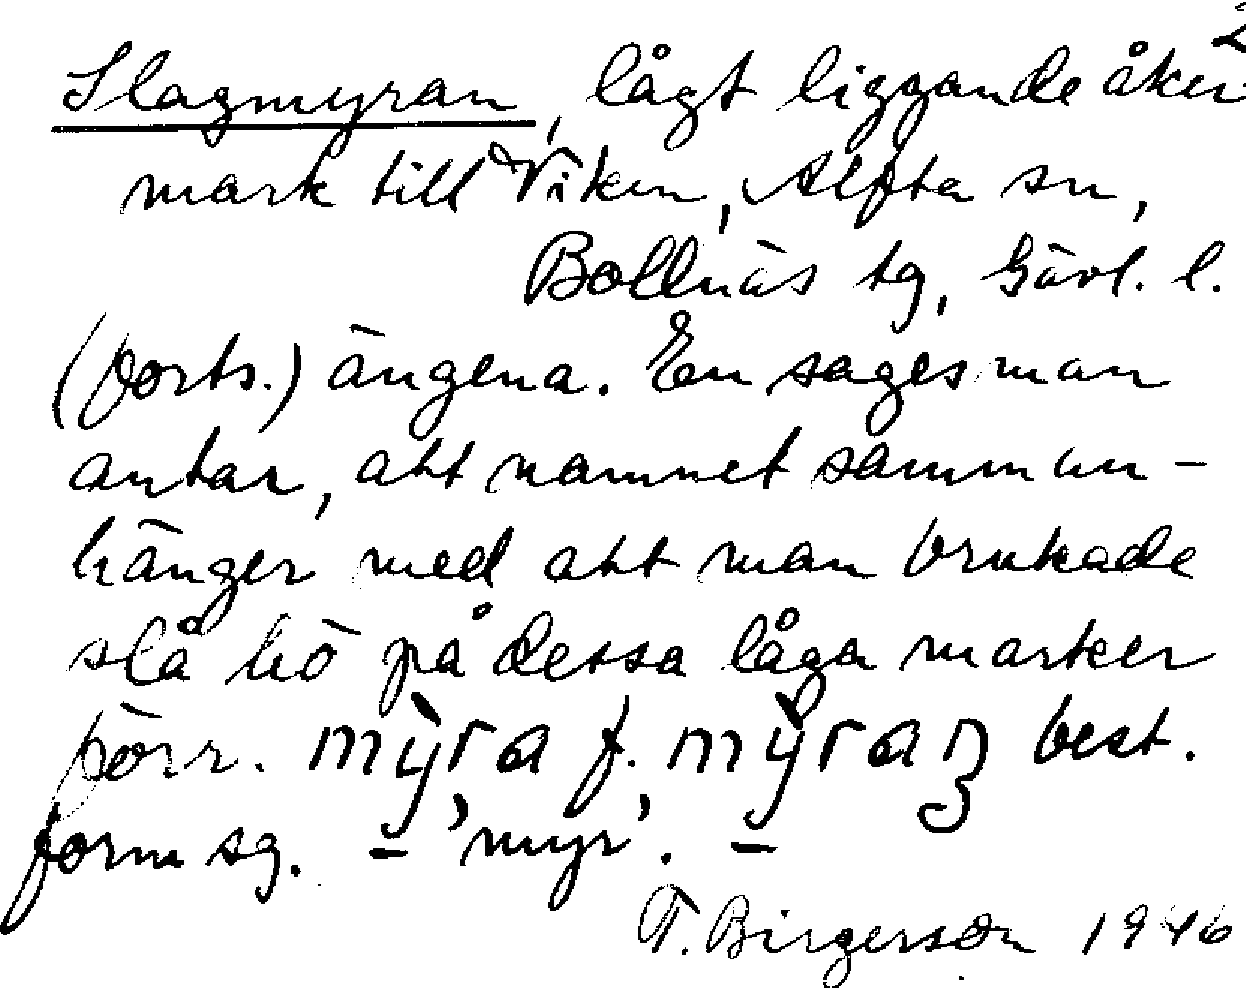 2
Slagmyran, lågt liggande åker
mark till Viken, Alfta sn,
Bollnäs tg, Gävl. l.
(forts.) ängena. En sagesman
antar, att namnet samman-
hänger med att man brukade
slå hö på dessa låga marker
förr. mỳra f. mỳraꞑ best.
form sg. – 'myr'. –
T. Birgerson 1946